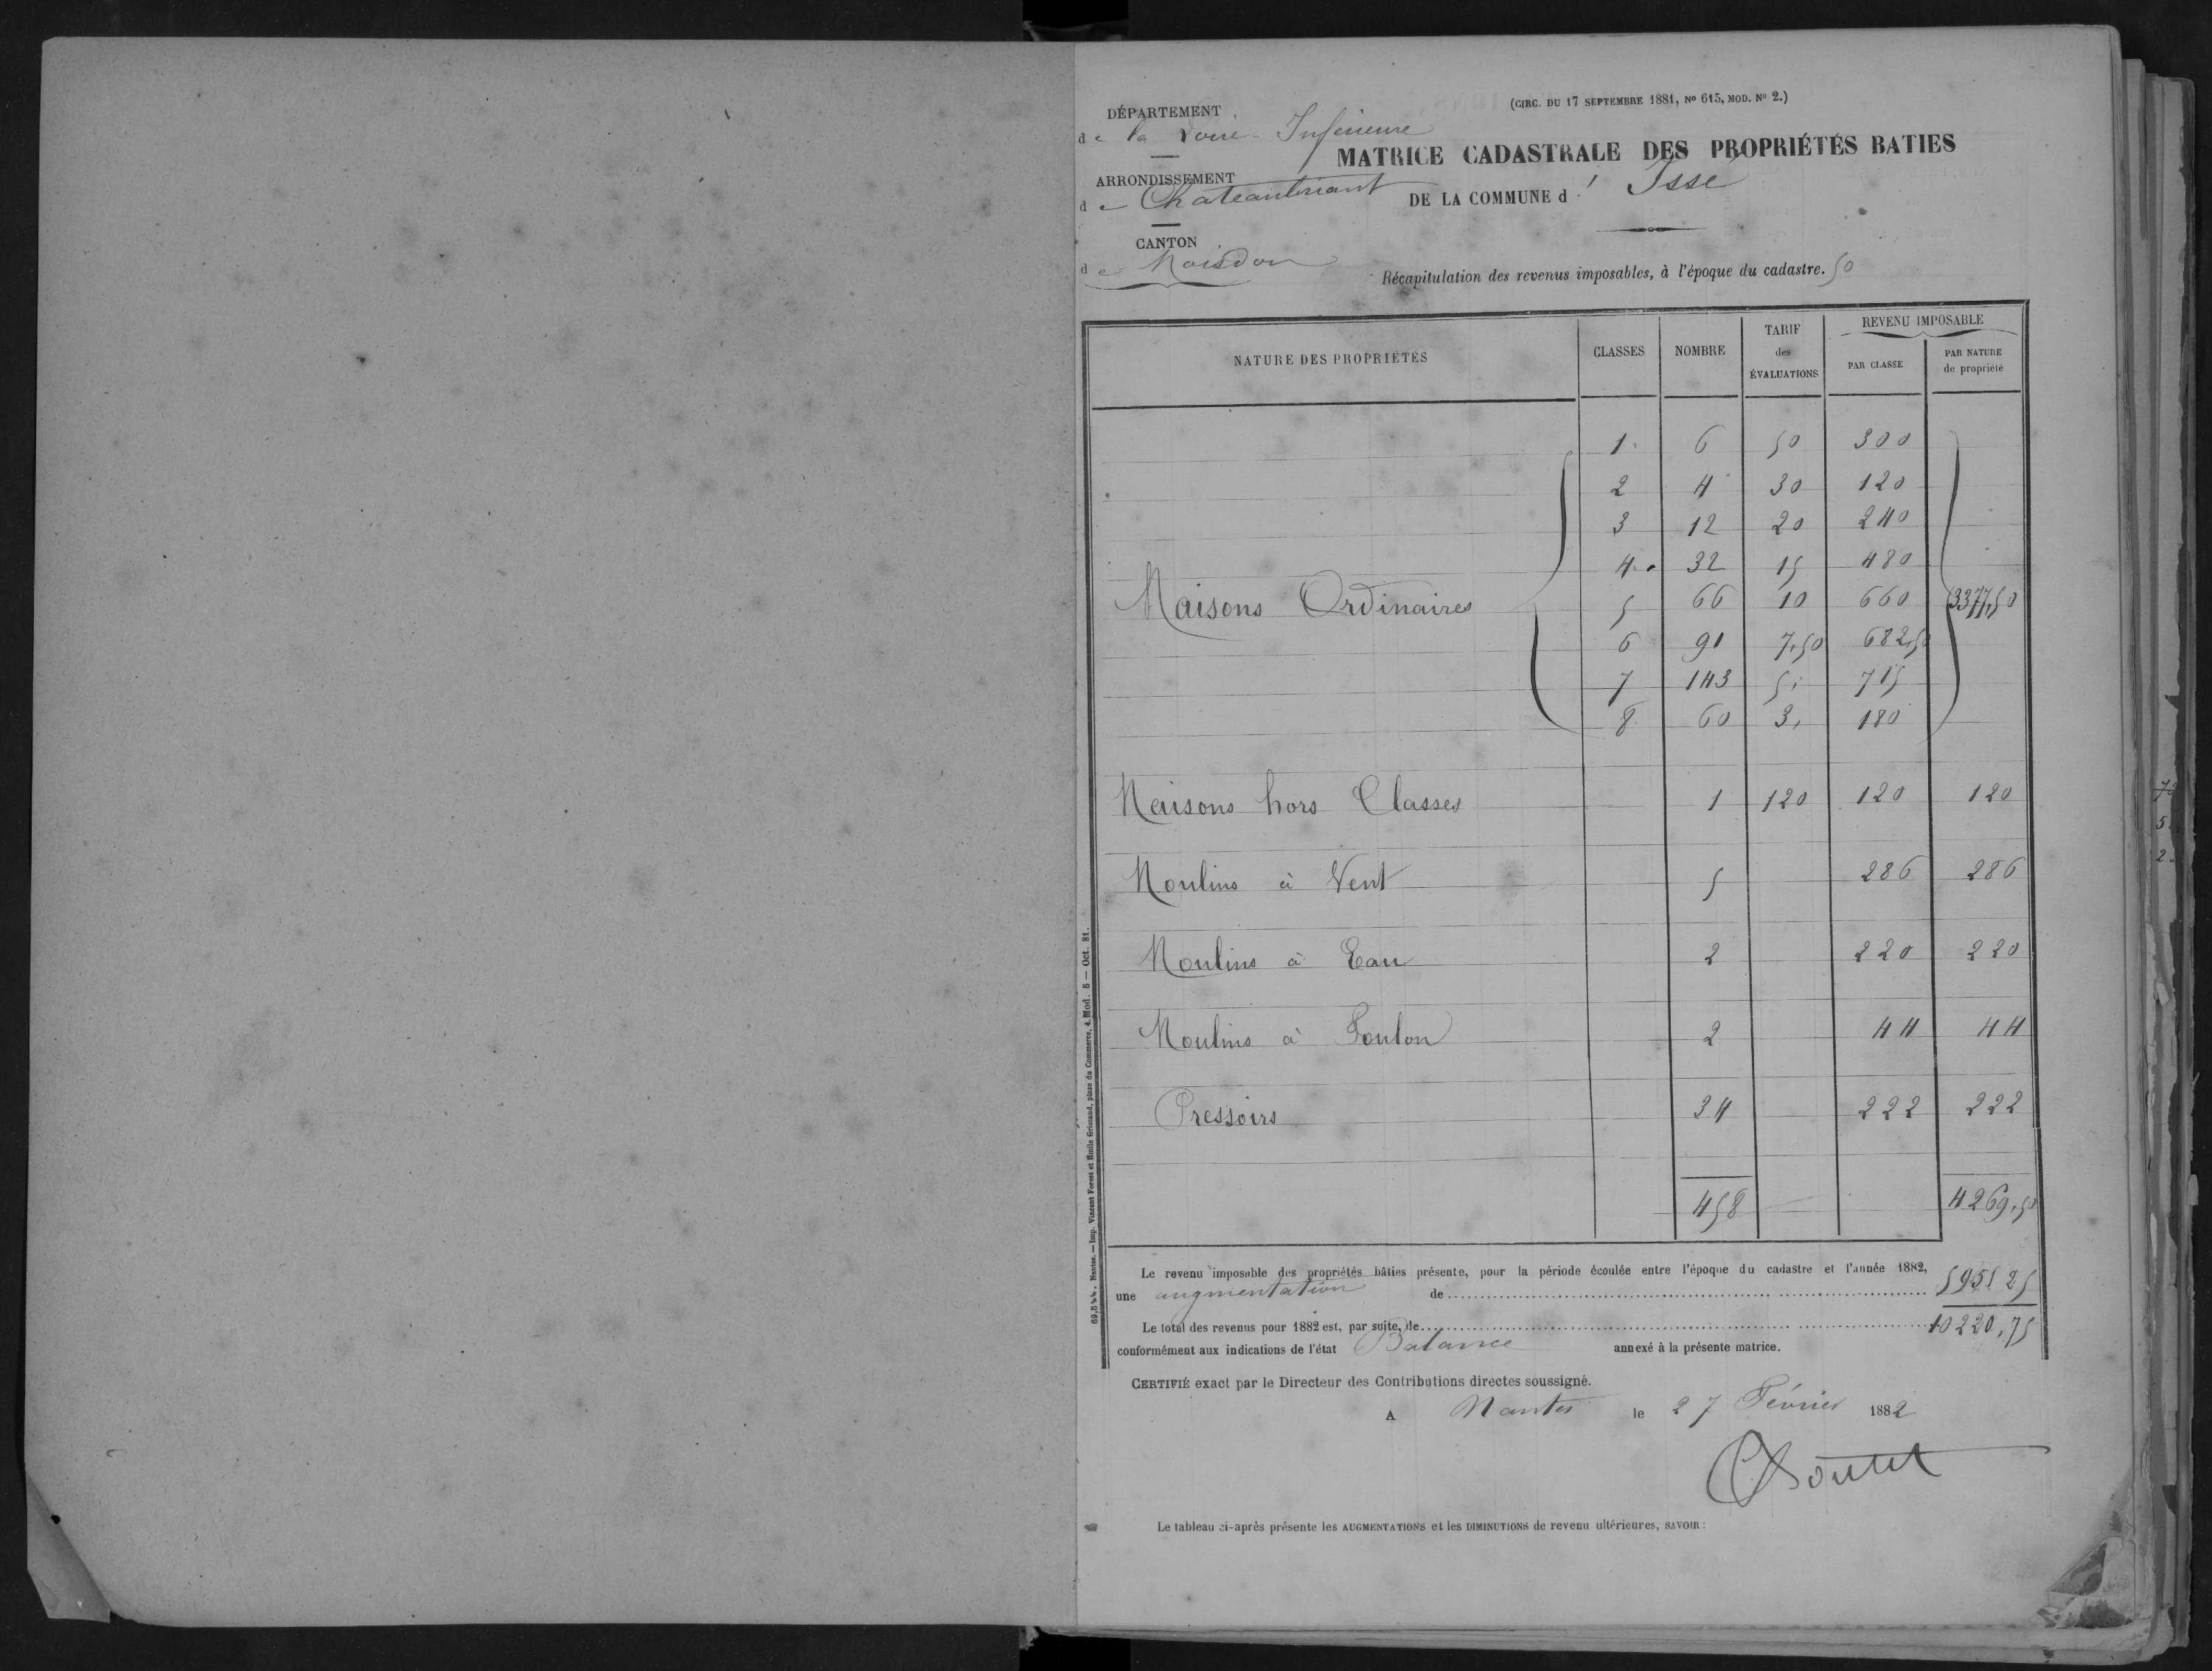 (CIRC. DU 17 SEPTEMBRE 1881, No 615, MOD. No 2.)
DÉPARTEMENT
de la Loire-Inférieure
MATRICE CADASTRALE DES PROPRIÉTÉS BATIES
ARRONDISSEMENT
de Chateaubriant
DE LA COMMUNE d' Issé
CANTON
de Moisdon
Récapitulation des revenus imposables, à l'époque du cadastre. 50
NATURE DES PROPRIÉTÉS CLASSES NOMBRE TARIF des ÉVALUATIONS REVENU IMPOSABLE
PAR CLASSE PAR NATURE de propriété
1 6 50 300
2 4 30 120
3 12 20 240
4 32 15 480
Maisons Ordinaires 5 66 10 660 3377,50
6 91 7,50 682,50
7 143 5, 715
8 60 3, 180
Maisons hors Classes 1 120 120 120
Moulins à Vent 5 286 286
Moulins à Eau 2 220 220
Moulins à Foulon 2 44 44
Pressoirs 34 222 222
458 4269,50
Le revenu imposable des propriétés bâties présente, pour la période écoulée entre l'époque du cadastre et l'année 1882,
une augmentation de 5951 25
Le total des revenus pour 1882 est, par suite, de 10220,75
conformément aux indications de l'état Balance annexé à la présente matrice.
CERTIFIÉ exact par le Directeur des Contributions directes soussigné.
A Nantes le 27 Février 1882
Le tableau ci-après présente les AUGMENTATIONS et les DIMINUTIONS de revenu ultérieures, SAVOIR :
Nantes. — Imp. Vincent Forest et Emile Grimaud, place du Commerce, 4. Mod. 5 — Oct. 81.